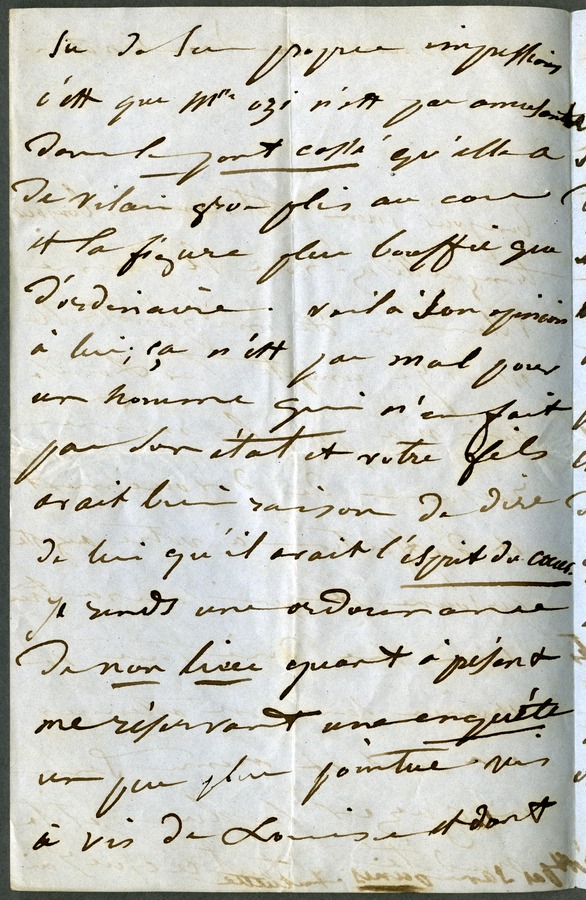 su de ses propres impressions
c'est que Mlle ozi n'est pas amusante
dans le pont cassé qu'elle a
de vilain gros plis au cou
et la figure plus bouffie que
d'ordinaire. voilà son opinion
à lui; ça n'est pas mal pour
un homme qui n'en fait
pas son état et votre fils
avait bien raison de dire
de lui qu'il avait l'esprit du cœur.
Je rends une ordonnance
de non lieu quant à présent
me réservant une enquête
un peu plus pointue vis
à vis de Louise et dont